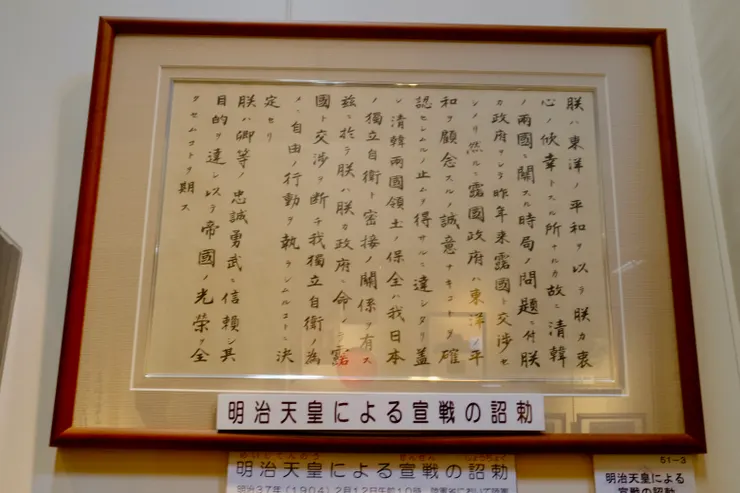 朕ハ東洋ノ平和ヲ以テ朕カ衷
心ノ欣幸トスル所ナルカ故ニ清韓
ノ兩國ニ關スル時局ノ問題ニ付朕
カ政府ヲシテ昨年来露國ト交渉セ
シメリ然ルニ露國政府ハ東洋ノ平
和ヲ顧念スルノ誠意ナキコトヲ確
認セシムルノ止ムヲ得サルニ達シタリ蓋
シ清韓兩國領土ノ保全ハ我日本
ノ獨立自衛ト密接ノ關係ヲ有ス
茲ニ於テ朕ハ朕カ政府ニ命シテ露
國ト交渉ヲ断チ我獨立自衛ノ為
メニ自由ノ行動ヲ執ラシムルコトニ決
定セリ
朕ハ卿等ノ忠誠勇武ニ信頼シ其
目的ヲ達シ以テ帝國ノ光榮ヲ全
クセムコトヲ期ス
明治天皇による宣戦の詔勅
めいじてんのう せんせん しょうちょく
明治天皇による宣戦の詔勅
明治37年（1904）2月12日午前10時
51-3
明治天皇による
宣戦の詔勅